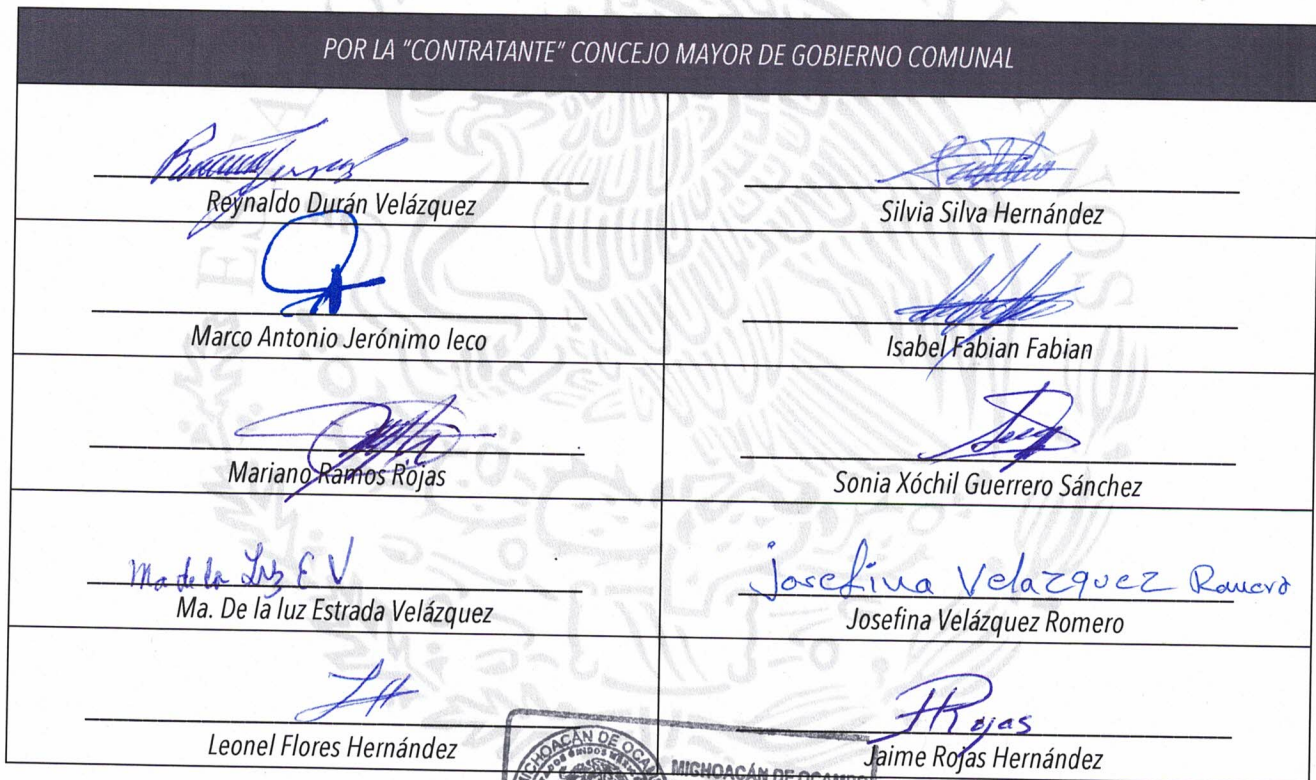 POR LA "CONTRATANTE" CONCEJO MAYOR DE GOBIERNO COMUNAL
Reynaldo Durán Velázquez
Silvia Silva Hernández
Marco Antonio Jerónimo leco
Isabel Fabian Fabian
Mariano Ramos Rojas
Sonia Xóchil Guerrero Sánchez
Ma de la Luz E V
Ma. De la luz Estrada Velázquez
Josefina Velazquez Romero
Josefina Velázquez Romero
Leonel Flores Hernández
Rojas
Jaime Rojas Hernández
MICHOACÁN DE OCAMPO